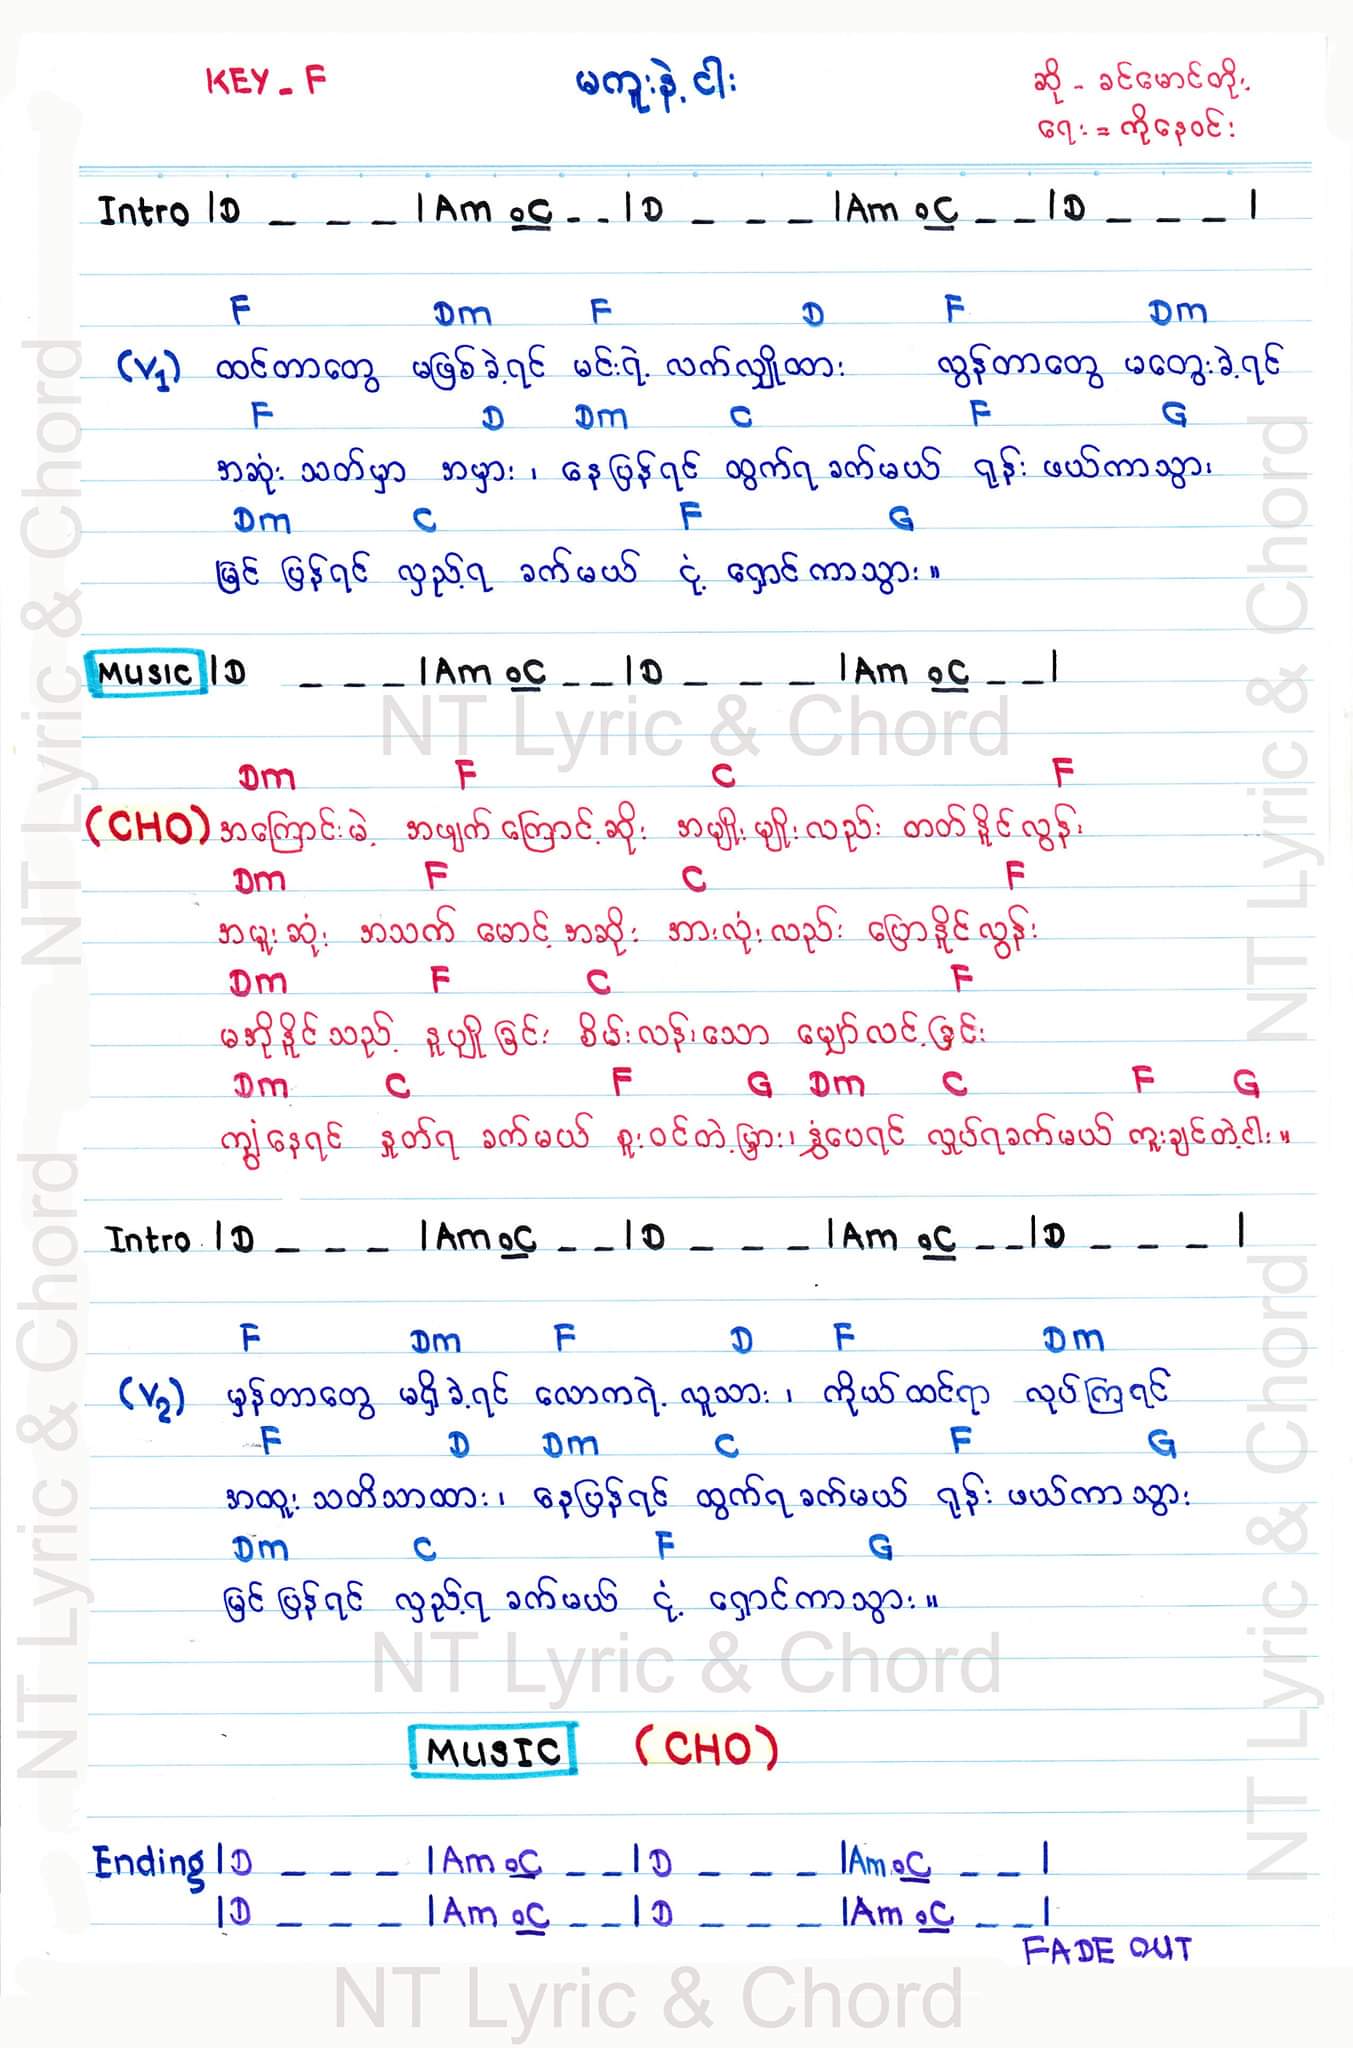 KEY - F
မကူးနဲ့ ငါး
ဆို - ခင်မောင်တိုး
ရေး = ကိုနေဝင်း
Intro |D _ _ _ |Am oC _ _ |D _ _ _ |Am oC _ _ |D _ _ _ |
F Dm F D F Dm
(V1) ထင်တာတွေ မဖြစ်ခဲ့ရင် မင်းရဲ့ လက်လျှိုထား လွန်တာတွေ မတွေးခဲ့ရင်
F D Dm C F G
အဆုံး သတ်မှာ အမှား ၊ နေပြန်ရင် ထွက်ရ ခက်မယ် ရုန်း ဖယ်ကာသွား
Dm C F G
မြင် ပြန်ရင် လှည့်ရ ခက်မယ် ငုံ့ ရှောင်ကာသွား ။
MUSIC |D _ _ _ |Am oC _ _ |D _ _ _ |Am oC _ _ |
NT Lyric & Chord
Dm F C F
(CHO) အကြောင်းမဲ့ အဖျက် ကြောင့် ဆိုး အမျိုး မျိုး လည်း တတ်နိုင်လွန်း
Dm F C F
အမူးဆုံး အသက် မောင့် အဆိုး အားလုံး လည်း ပြောနိုင်လွန်း
Dm F C F
မအိုနိုင်သည့် နုပျိုခြင်း စိမ်းလန်းသော မျှော်လင့်ခြင်း
Dm C F G Dm C F G
ကျွံနေရင် နှုတ်ရ ခက်မယ် စူးဝင်တဲ့ မြှား ၊ နွံပေရင် လှုပ်ရခက်မယ် ကူးချင်တဲ့ ငါး ။
Intro |D _ _ _ |Am oC _ _ |D _ _ _ |Am oC _ _ |D _ _ _ |
F Dm F D F Dm
(V2) မှန်တာတွေ မရှိခဲ့ရင် လောကရဲ့ လူသား ၊ ကိုယ်ထင်ရာ လုပ်ကြရင်
F D Dm C F G
အထူး သတိသာထား ၊ နေပြန်ရင် ထွက်ရ ခက်မယ် ရုန်း ဖယ်ကာသွား
Dm C F G
မြင် ပြန်ရင် လှည့်ရ ခက်မယ် ငုံ့ ရှောင်ကာသွား ။
NT Lyric & Chord
MUSIC (CHO)
Ending |D _ _ _ |Am oC _ _ |D _ _ _ |Am oC _ _ |
|D _ _ _ |Am oC _ _ |D _ _ _ |Am oC _ _ |
FADE OUT
NT Lyric & Chord
NT Lyric & Chord
NT Lyric & Chord
NT Lyric & Chord
NT Lyric & Chord